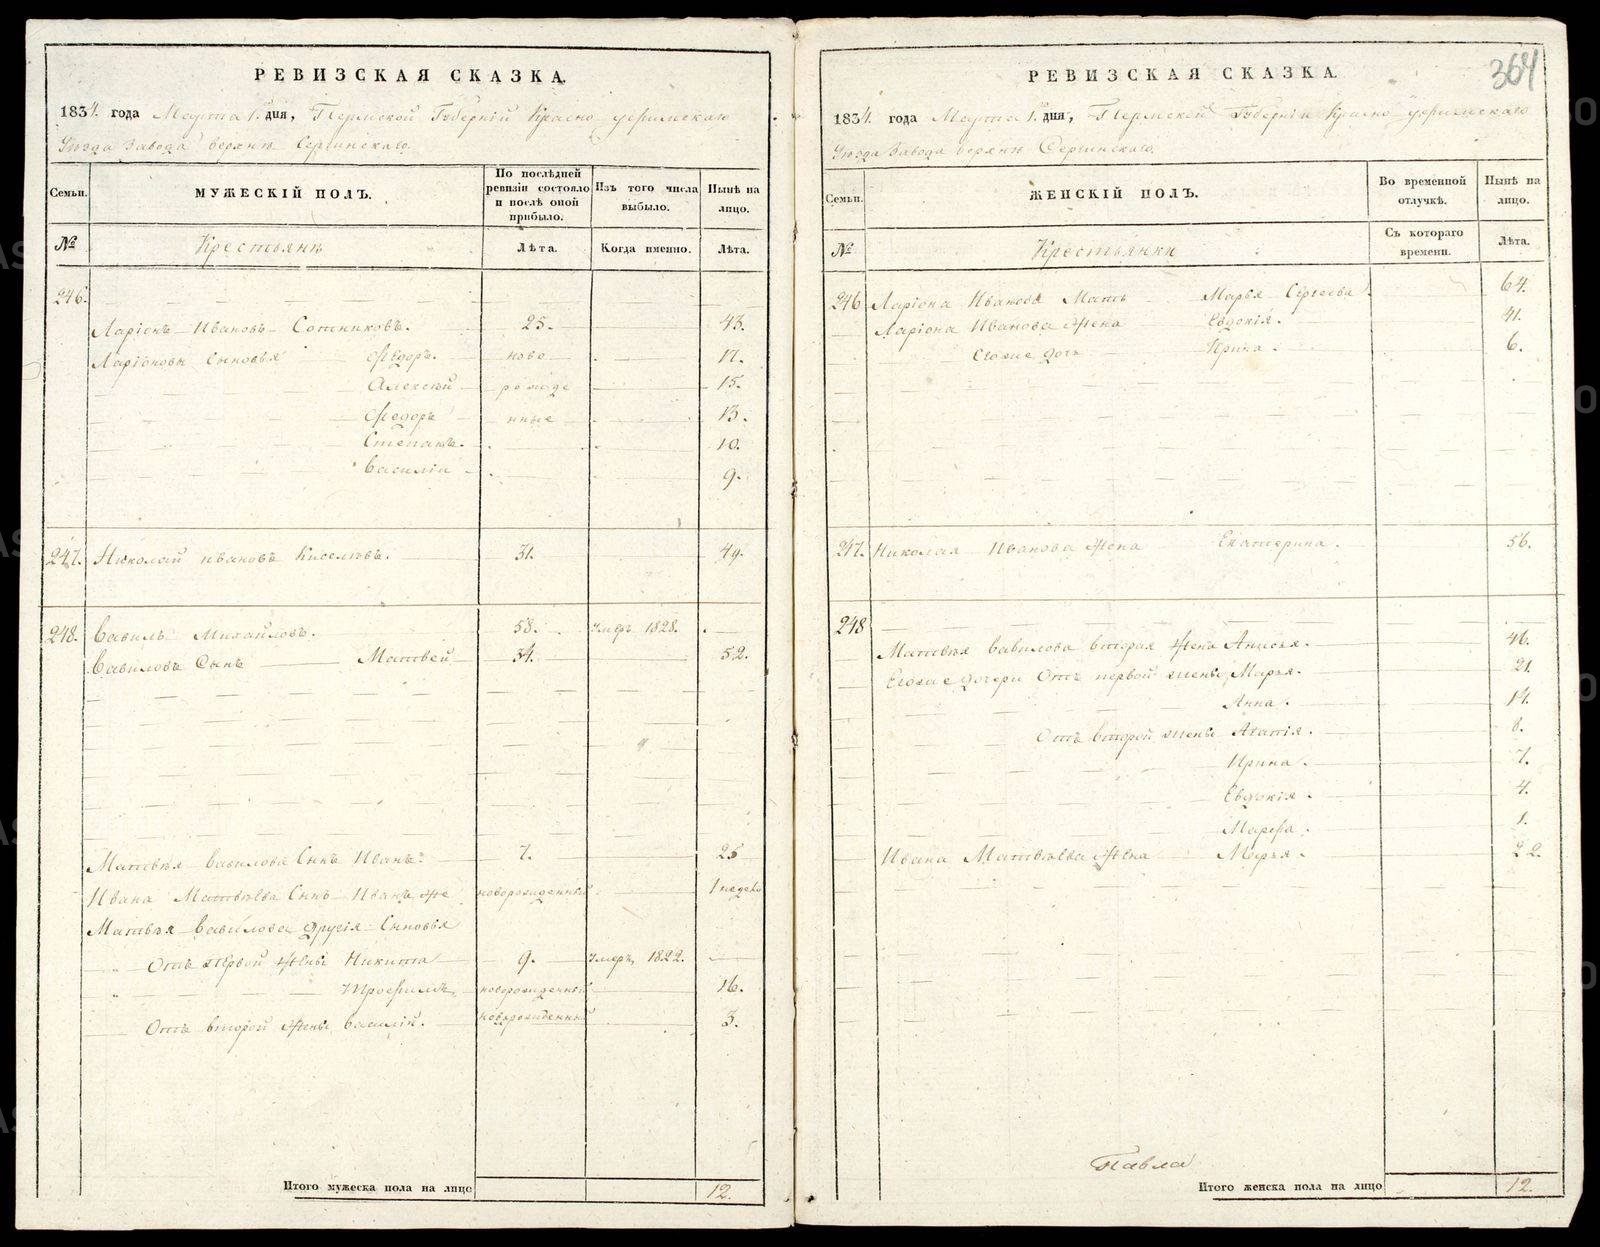 РЕВИЗСКАЯ СКАЗКА.
1834. года Марта 1. дня, Пермской Губерніи Красно уфимскаго
Уѣзда Завода верхнѣ Сергинскаго.
Семьи. МУЖЕСКІЙ ПОЛЪ. По послѣдней ревизіи состояло и послѣ оной прибыло. Изъ того числа выбыло. Нынѣ на лицо.
№ Крестьянѣ Лѣта. Когда именно. Лѣта.
246.
Ларіонъ Ивановъ Сотниковъ. 25. 43.
Ларіоновы сыновья Ѳедоръ. ново 17.
Алексѣй рожде 15.
Ѳедоръ нные 13.
Степанъ. 10.
Василіи 9.
247. Николай Ивановъ Киселевъ. 31. 49.
248. Вавилъ Михайловъ. 58. Умеръ 1828.
Вавиловъ Сынъ Матвей 34. 52.
Матвѣя Вавилова Сынъ Иванъ. 7. 25
Ивана Матвѣева Сынъ Иванъ же новорожденный 1 недель
Матвѣя Вавилова другія Сыновья
Отъ первой жены Никита 9. Умеръ 1822.
Трофимъ, новорожденный 16.
Отъ второй жены Василій. новорожденный 3.
Итого мужеска пола на лицо 12.
364
РЕВИЗСКАЯ СКАЗКА.
1834. года Марта 1. дня, Пермской Губерніи Красно уфимскаго
Уѣзда Завода верхнѣ Сергинскаго.
Семьи. ЖЕНСКІЙ ПОЛЪ. Во временной отлучкѣ. Нынѣ на лицо.
№ Крестьянки Съ котораго времени. Лѣта.
246 Ларіона Иванова Мать Марья Сергеева. 64.
Ларіона Иванова Жена Евдокія. 41.
Егоже дочь Ирина. 6.
247. Николая Иванова Жена Екатерина. 56.
248
Матвѣя Вавилова вторая Жена Анисья. 46.
Егоже дочери Отъ первой жены, Марья. 21.
Анна. 14.
Отъ второй жены Агапія. 8.
Ирина. 7.
Евдокія. 4.
Марфа. 1.
Ивана Матвѣева Жена Марья. 22.
Павла
Итого женска пола на лицо 12.